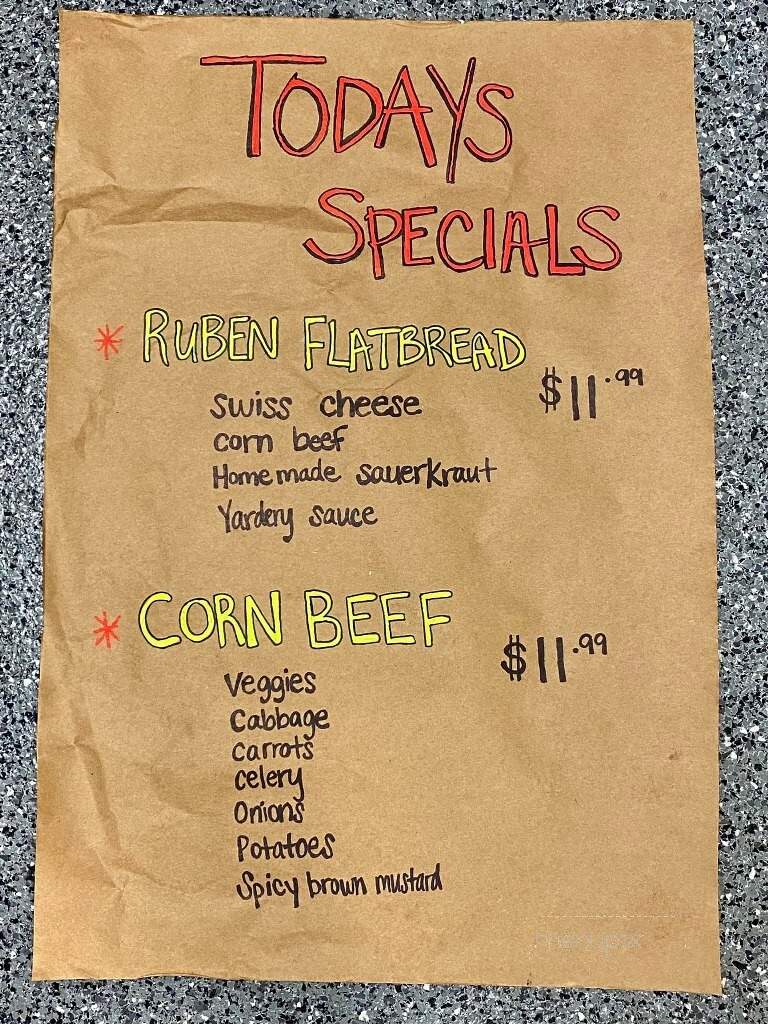 TODAYS
SPECIALS
* RUBEN FLATBREAD
$11.99
swiss cheese
corn beef
Homemade sauerkraut
Yardery sauce
* CORN BEEF
$11.99
Veggies
Cabbage
carrots
celery
Onions
Potatoes
Spicy brown mustard